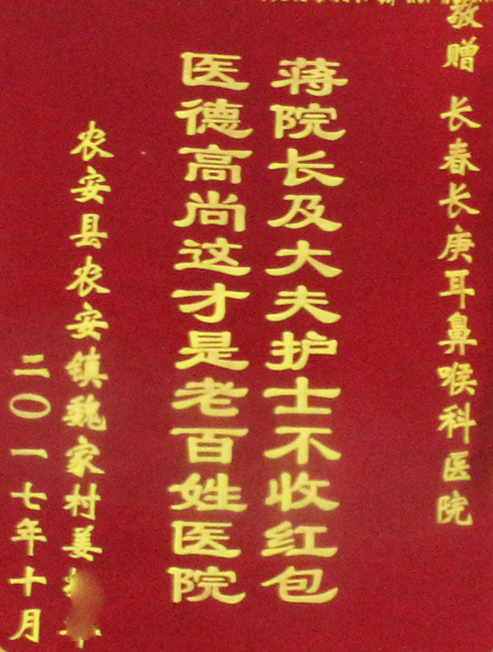 敬赠 长春长庚耳鼻喉科医院
蒋院长及大夫护士不收红包
医德高尚这才是老百姓医院
农安县农安镇魏家村姜
二〇一七年十月